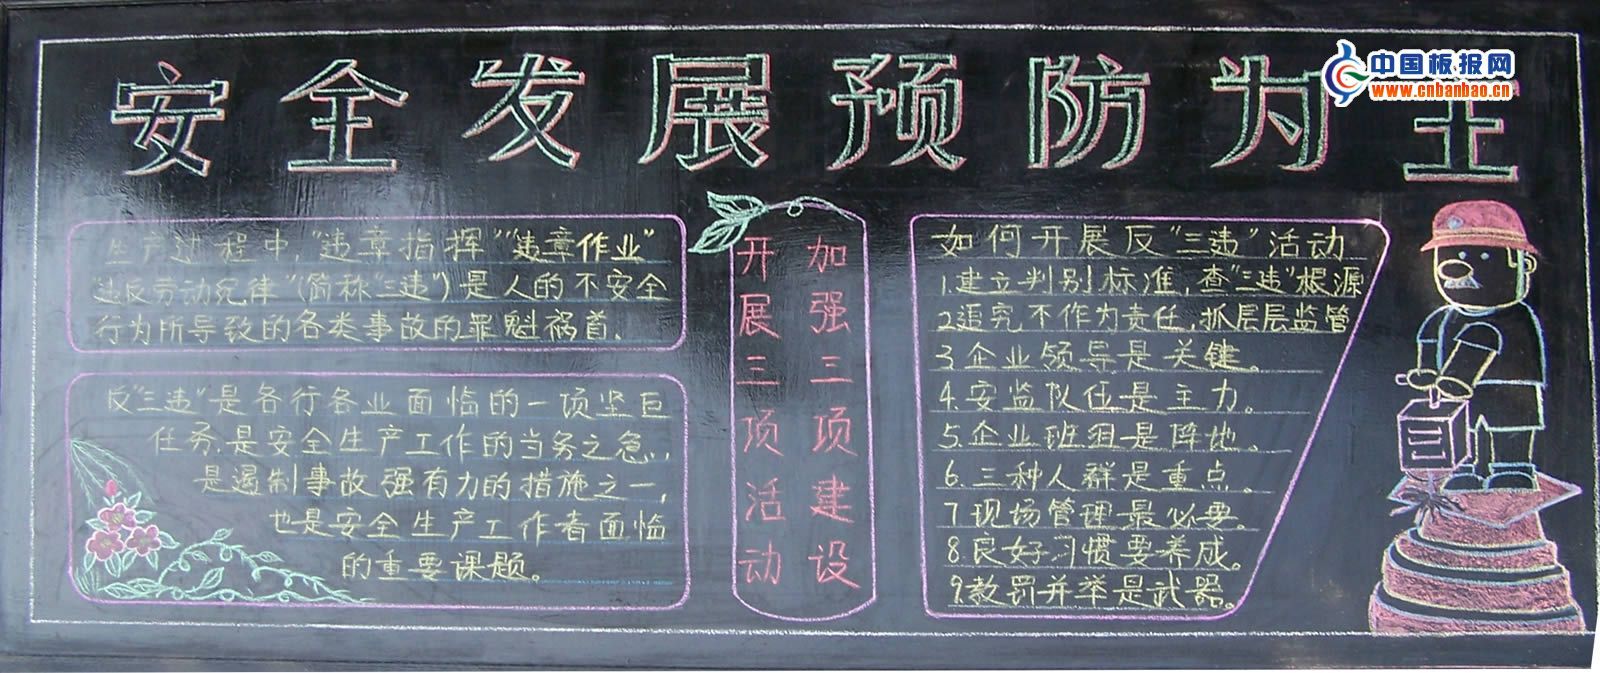 安全发展预防为主
中国板报网
www.cnbanbao.cn
生产过程中,"违章指挥""违章作业"
违反劳动纪律"(简称"三违")是人的不安全
行为所导致的各类事故的罪魁祸首.
反"三违"是各行各业面临的一项坚巨
任务.是安全生产工作的当务之急,
是遏制事故强有力的措施之一,
也是安全生产工作者面临
的重要课题。
加强三项建设
开展三项活动
如何开展反"三违"活动
1.建立判别标准,查"三违"根源
2追究不作为责任,抓层层监管
3.企业领导是关键。
4.安监队伍是主力。
5.企业班组是阵地。
6.三种人群是重点。
7现场管理最必要。
8.良好习惯要养成。
9教罚并举是武器。
三